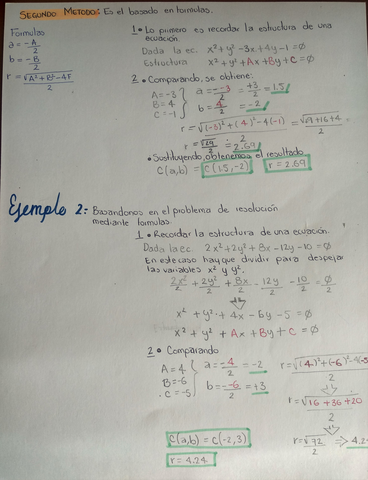 SEGUNDO METODO: Es el basado en formulas.
Formulas
a = -A/2
b = -B/2
r = √A²+B²-4F / 2
1• Lo primero es recordar la estructura de una
ecuación.
Dada la ec. x²+y²-3x+4y-1=0
Estructura x²+y²+Ax+By+C=0
2• Comparando, se obtiene:
A=-3
B=4
C=-1
a = --3/2 = +3/2 = 1.5
b = 4/2 = -2
r = √(-3)²+(4)²-4(-1) / 2 = √9+16+4 / 2
r = √29 / 2 = 2.69
• Sustituyendo, obtenemos el resultado
C(a,b) = C(1.5,-2) r = 2.69
Ejemplo 2: Basandonos en el problema de resolución
mediante formulas.
1• Recordar la estructura de una ecuación.
Dada la ec. 2x²+2y²+8x-12y-10=0
En este caso hay que dividir para despejar
las variables x² y y².
2x²/2 + 2y²/2 + 8x/2 - 12y/2 - 10/2 = 0/2
x² + y² + 4x - 6y - 5 = 0
x² + y² + Ax + By + C = 0
2• Comparando
A=4
B=-6
C=-5
a = -4/2 = -2
b = --6/2 = +3
r = √(4)²+(-6)²-4(-5
r = √16+36+20 / 2
r = √72 / 2 => 4.2
C(a,b) = C(-2,3)
r = 4.24